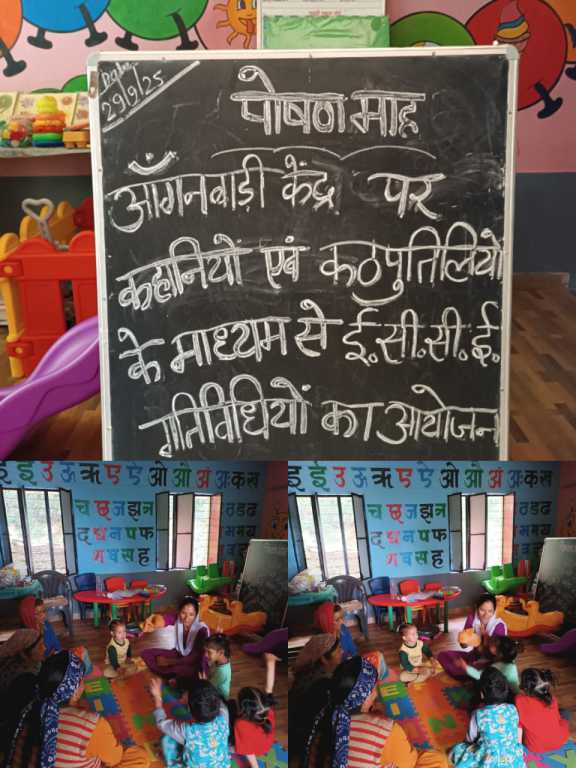 Date
29/9/25
पोषण माह
आँगनवाड़ी केंद्र पर
कहानियों एवं कठपुतिलियो
के माध्यम से ई.सी.सी.ई.
गतिविधियों का आयोजन
इ ई उ ऊ ऋ ए ऐ ओ औ अं अः क ख
च छ ज झ ञ
द ध न प फ
स ह
इ ई उ ऊ ऋ ए ऐ ओ औ अं अः क ख
च छ ज झ ञ
द ध न प फ
स ह